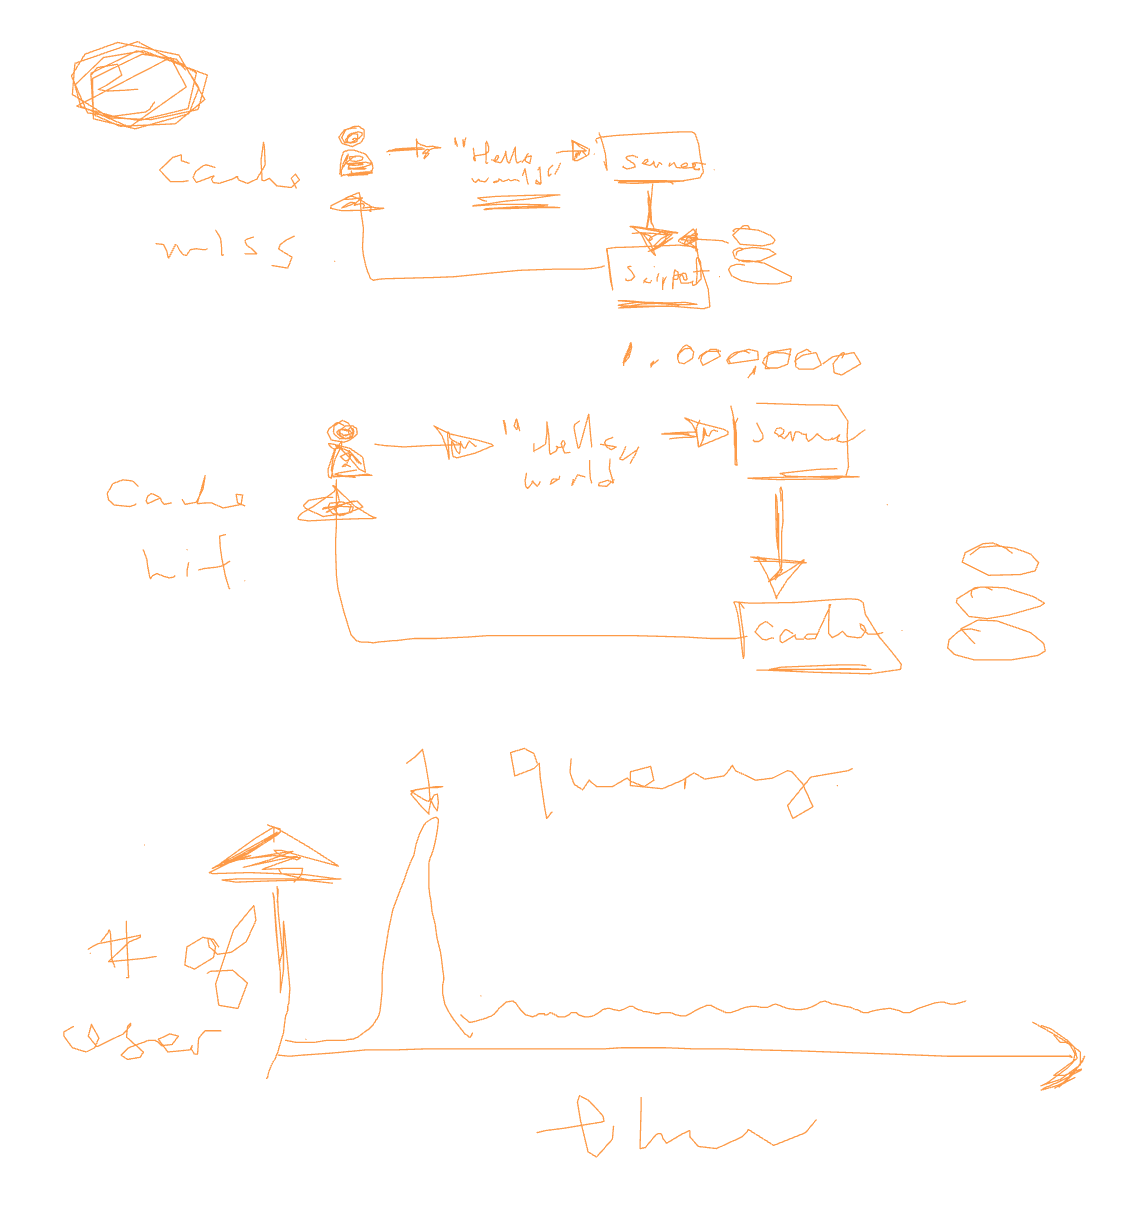 Cache
miss
"Hello
world"
Server
Snippet
1.000,000
Cache
hit
"Hello"
world
Server
Cache
1 query
# of
user
time